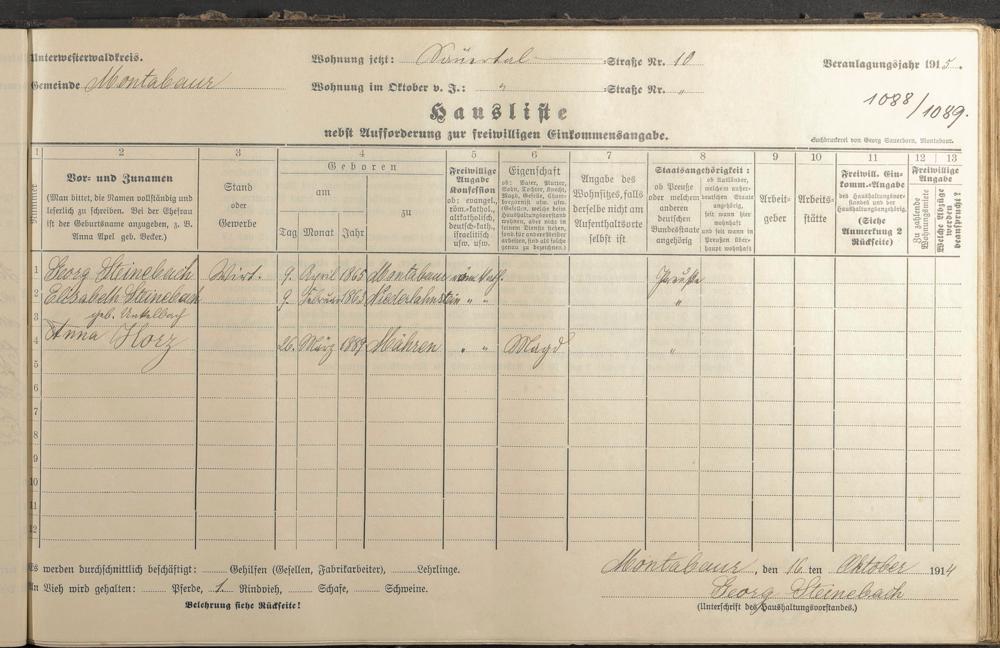 Unterwesterwaldkreis.
Wohnung jetzt: Sauertal -Straße Nr. 10
Veranlagungsjahr 1915.
Gemeinde Montabaur
Wohnung im Oktober v. J.: " -Straße Nr. "
1088/1089.
Hausliste
nebst Aufforderung zur freiwilligen Einkommensangabe.
Buchdruckerei von Georg Sauerborn, Montabaur.
1 2 3 4 5 6 7 8 9 10 11 12 13
Nummer
Vor- und Zunamen
(Man bittet, die Namen vollständig und
leserlich zu schreiben. Bei der Ehefrau
ist der Geburtsname anzugeben, z. B.
Anna Apel geb. Becker.)
Stand
oder
Gewerbe
Geboren
am
Tag Monat Jahr
zu
Freiwillige
Angabe
Konfession
ob: evangel.,
röm.-kathol.,
altkatholisch,
deutsch-kath.,
israelitisch
usw. usw.
Eigenschaft
ob: Vater, Mutter,
Sohn, Tochter, Knecht,
Magd, Geselle,
Angabe des
Wohnsitzes, falls
derselbe nicht am
Aufenthaltsorte
selbst ist
Staatsangehörigkeit:
ob Preuße
oder welchem
anderen
deutschen
Bundesstaate
angehörig
ob Ausländer,
welchem außer-
deutschen Staate
angehörig,
seit wann hier
wohnhaft
und seit wann in
Preußen über-
haupt wohnhaft
Arbeit-
geber
Arbeits-
stätte
Freiwill. Ein-
komm.-Angabe
des Haushaltungsvor-
standes und der
Haushaltungsangehörig.
(Siehe
Anmerkung 2
Rückseite)
Freiwillige
Angabe
Zu zahlende
Wohnungsmiete
Welche Abzüge
werden
beansprucht?
1 Georg Steinebach Wirt. 9. April 1865 Montabaur röm. kath. Preuße
2 Elisabeth Steinebach 9. Februar 1863 Niederlahnstein " " "
3 geb. Unkelbach
4 Anna Horz 26. März 1889 Mähren " " Magd "
5
6
7
8
9
10
11
12
Es werden durchschnittlich beschäftigt: Gehilfen (Gesellen, Fabrikarbeiter), Lehrlinge.
An Vieh wird gehalten: Pferde, 1 Rindvieh, Schafe, Schweine.
Belehrung siehe Rückseite!
Montabaur, den 16. ten Oktober 1914
Georg Steinebach
(Unterschrift des Haushaltungsvorstandes.)